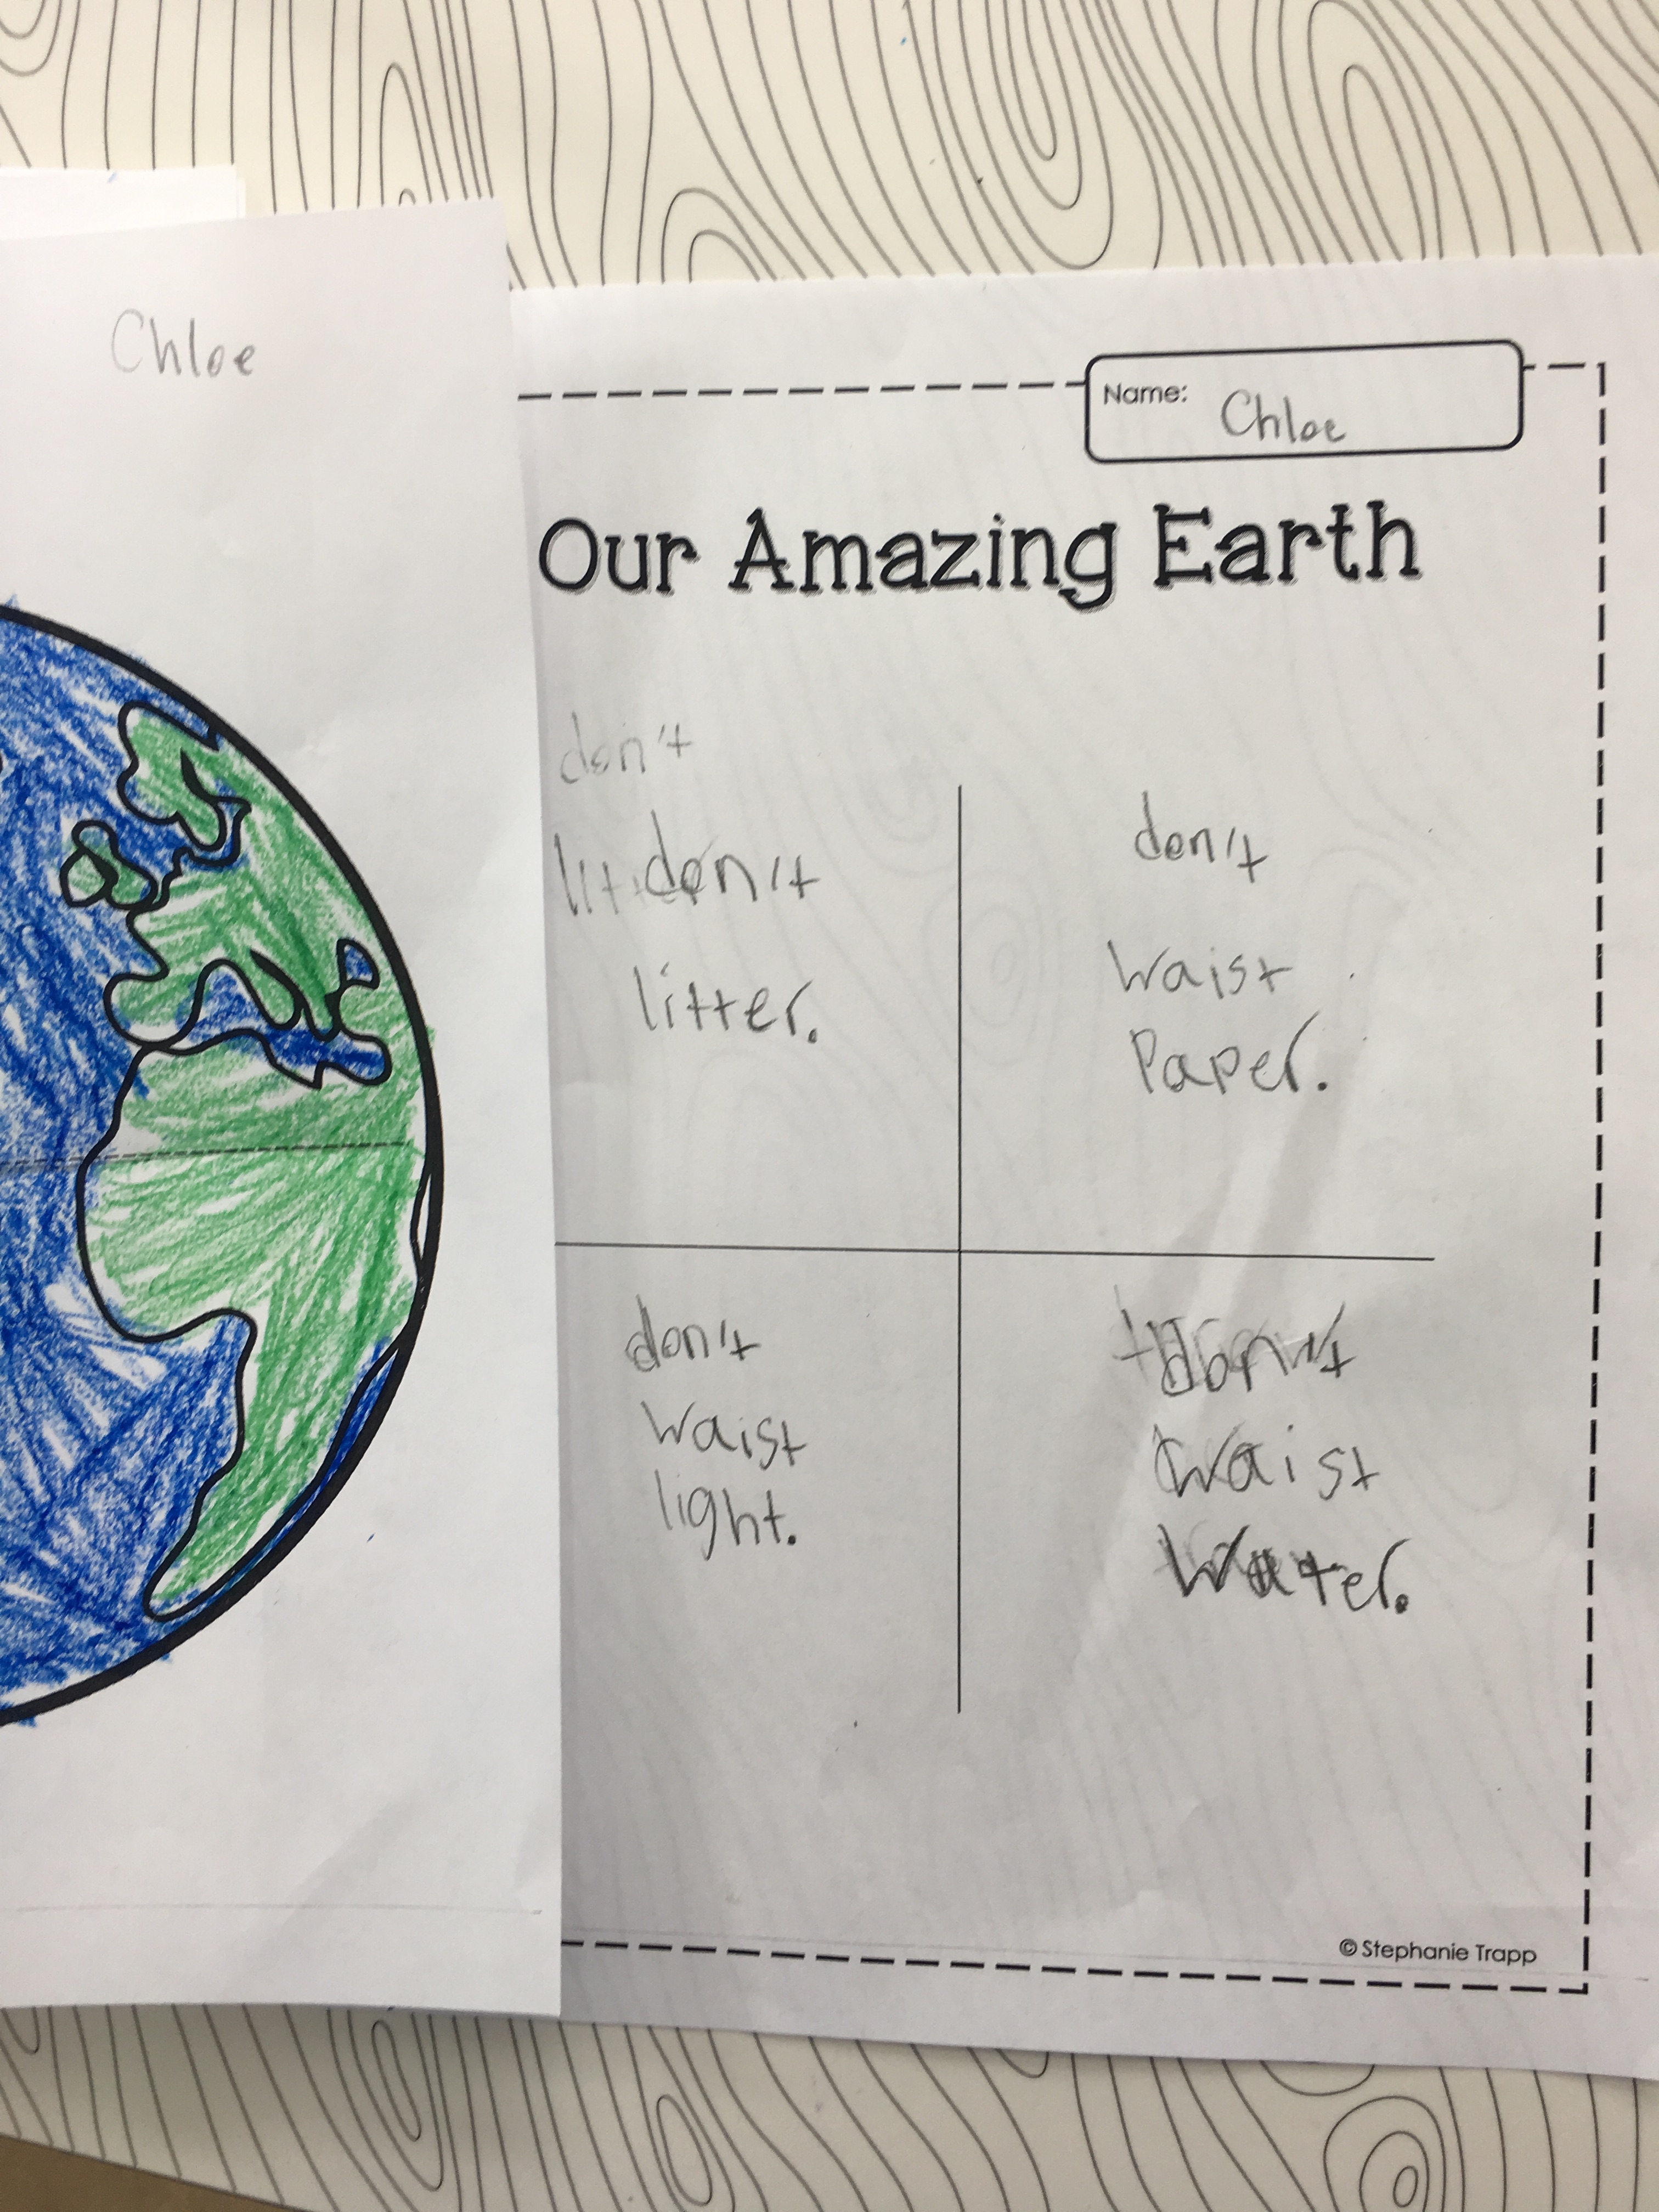 Chloe
Name: Chloe
Our Amazing Earth
don't
lit don't
litter.
don't
waist
Paper.
don't
waist
light.
don't
waist
Water.
© Stephanie Trapp